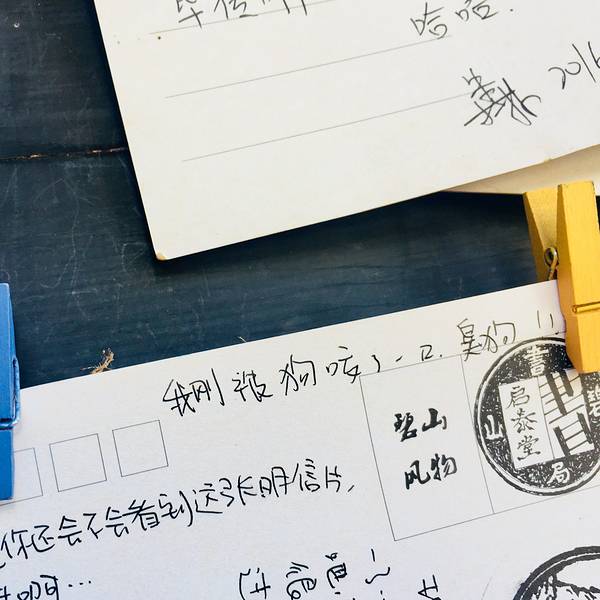 哈哈.
我刚被狗咬了一口. 臭狗!!
碧山
风物
碧山書局
启泰堂
你还会不会看到这张明信片,
啊...